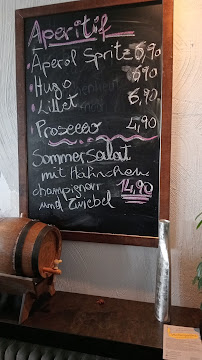 Aperitif
Aperol Spritz 6,90
Hugo 6,90
Lillet 6,90
Prosecco 4,90
Sommersalat
mit Hähnchen
champignon 14,90
und Zwiebel